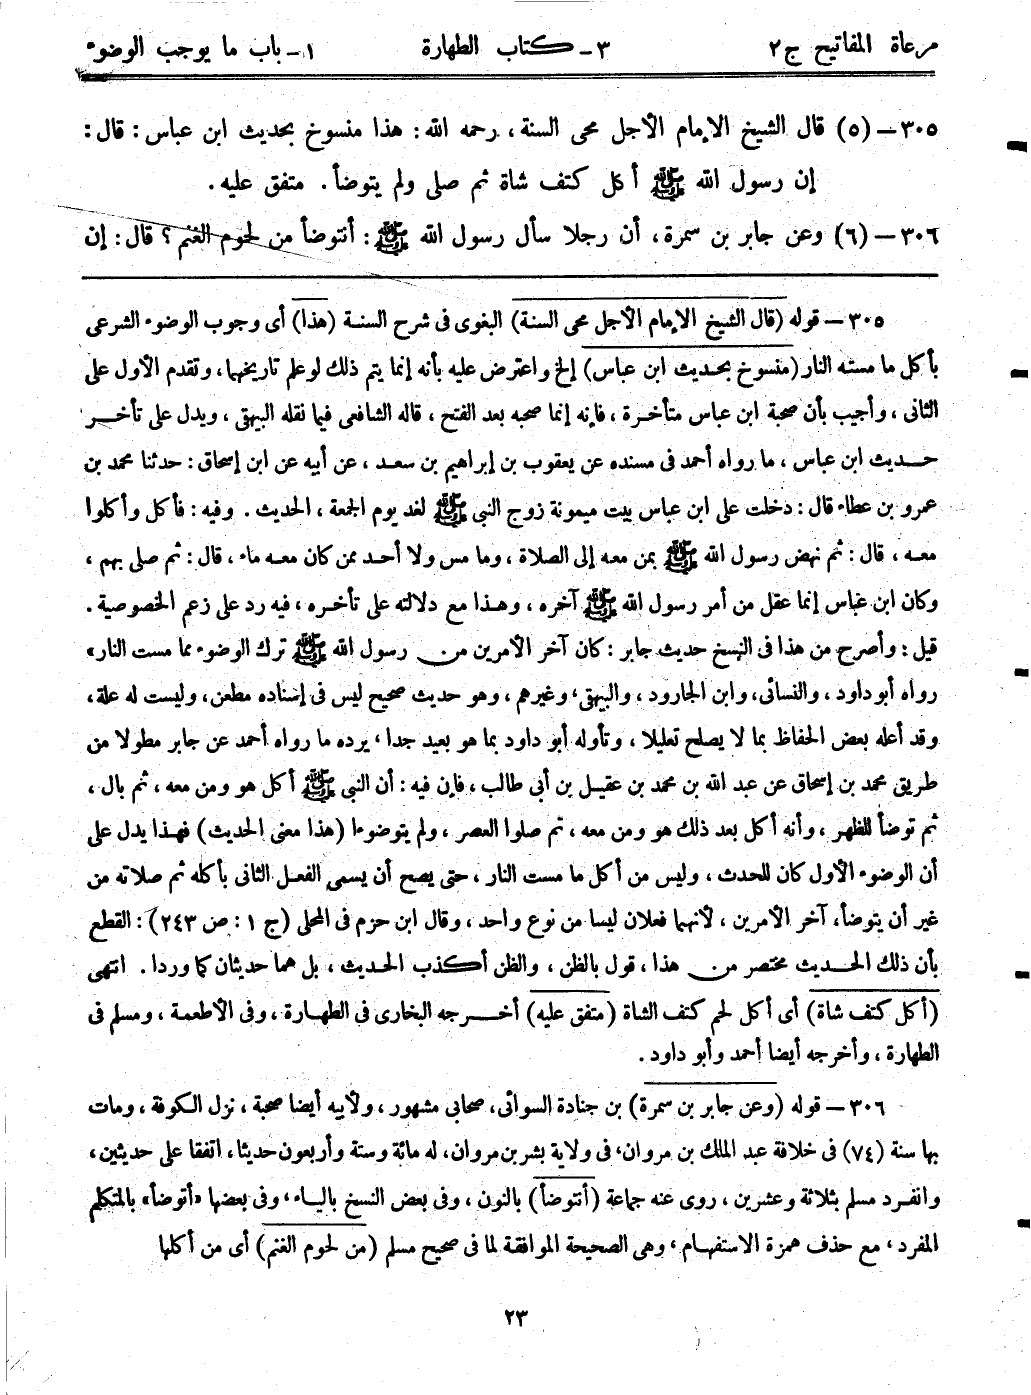 مرعاة المفاتيح ج٢ ٣- كتاب الطهارة ١- باب ما يوجب الوضوء
٣٠٥ – (٥) قال الشيخ الإمام الأجل محى السنة، رحمه الله: هذا منسوخ بحديث ابن عباس: قال:
إن رسول الله ﷺ أكل كتف شاة ثم صلى ولم يتوضأ. متفق عليه.
٣٠٦ – (٦) وعن جابر بن سمرة، أن رجلا سأل رسول الله ﷺ: أنتوضأ من لحوم الغنم؟ قال: إن
٣٠٥ – قوله (قال الشيخ الإمام الأجل محى السنة) البغوى فى شرح السنة (هذا) أى وجوب الوضوء الشرعى
بأكل ما مسته النار (منسوخ بحديث ابن عباس) إلخ واعترض عليه بأنه إنما يتم ذلك لو علم تاريخهما، وتقدم الأول على
الثانى، وأجيب بأن صحبة ابن عباس متأخرة، فإنه إنما صحبه بعد الفتح، قاله الشافعى فيما نقله البيهقى، ويدل على تأخر
حديث ابن عباس، ما رواه أحمد فى مسنده عن يعقوب بن إبراهيم بن سعد، عن أبيه عن ابن إسحاق: حدثنا محمد بن
عمرو بن عطاء قال: دخلت على ابن عباس بيت ميمونة زوج النبى ﷺ لغد يوم الجمعة، الحديث. وفيه: فأكل وأكلوا
معه، قال: ثم نهض رسول الله ﷺ بمن معه إلى الصلاة، وما مس ولا أحد ممن كان معه ماء، قال: ثم صلى بهم،
وكان ابن عباس إنما عقل من أمر رسول الله ﷺ آخره، وهذا مع دلالته على تأخره، فيه رد على زعم الخصوصية.
قيل: وأصرح من هذا فى النسخ حديث جابر: كان آخر الأمرين من رسول الله ﷺ ترك الوضوء مما مست النار»
رواه أبو داود، والنسائى، وابن الجارود، والبيهقى، وغيرهم، وهو حديث صحيح ليس فى إسناده مطعن، وليست له علة،
وقد أعله بعض الحفاظ بما لا يصلح تعليلا، وتأوله أبو داود بما هو بعيد جدا، يرده ما رواه أحمد عن جابر مطولا من
طريق محمد بن إسحاق عن عبد الله بن محمد بن عقيل بن أبي طالب، فإن فيه: أن النبى ﷺ أكل هو ومن معه، ثم بال،
ثم توضأ للظهر، وأنه أكل بعد ذلك هو ومن معه، ثم صلوا العصر، ولم يتوضوءا (هذا معنى الحديث) فهذا يدل على
أن الوضوء الأول كان للحدث، وليس من أكل ما مست النار، حتى يصح أن يسمى الفعل الثانى بأكله ثم صلاته من
غير أن يتوضأ، آخر الأمرين، لأنهما فعلان ليسا من نوع واحد، وقال ابن حزم فى المحلى (ج ١: ص ٢٤٣): القطع
بأن ذلك الحديث مختصر من هذا، قول بالظن، والظن أكذب الحديث، بل هما حديثان كما وردا. انتهى
(أكل كتف شاة) أى أكل لحم كتف الشاة (متفق عليه) أخرجه البخارى فى الطهارة، وفى الأطعمة، ومسلم فى
الطهارة، وأخرجه أيضا أحمد وأبو داود.
٣٠٦ – قوله (وعن جابر بن سمرة) بن جنادة السوائى، صحابى مشهور، ولأبيه أيضا صحبة، نزل الكوفة، ومات
بها سنة (٧٤) فى خلافة عبد الملك بن مروان، فى ولاية بشر بن مروان، له مائة وستة وأربعون حديثا، اتفقا على حديثين،
وانفرد مسلم بثلاثة وعشرين، روى عنه جماعة (أنتوضأ) بالنون، وفى بعض النسخ بالياء، وفى بعضها «أتوضأ» بالمتكلم
المفرد، مع حذف همزة الاستفهام، وهى الصحيحة الموافقة لما فى صحيح مسلم (من لحوم الغنم) أى من أكلها
٢٣